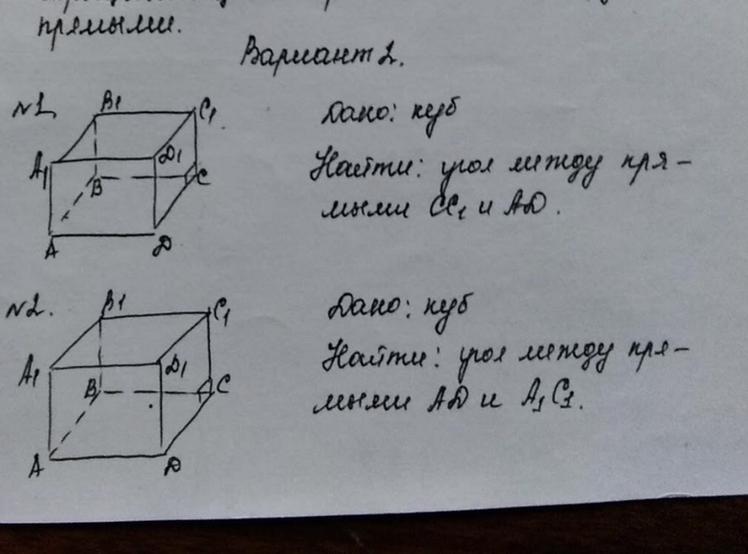 прямыми.
Вариант 2.
№1
B1 C1
A1 D1
B C
A D
Дано: куб
Найти: угол между пря-
мыми CC1 и AD.
№2.
B1 C1
A1 D1
B C
A D
Дано: куб
Найти: угол между пря-
мыми AD и A1C1.